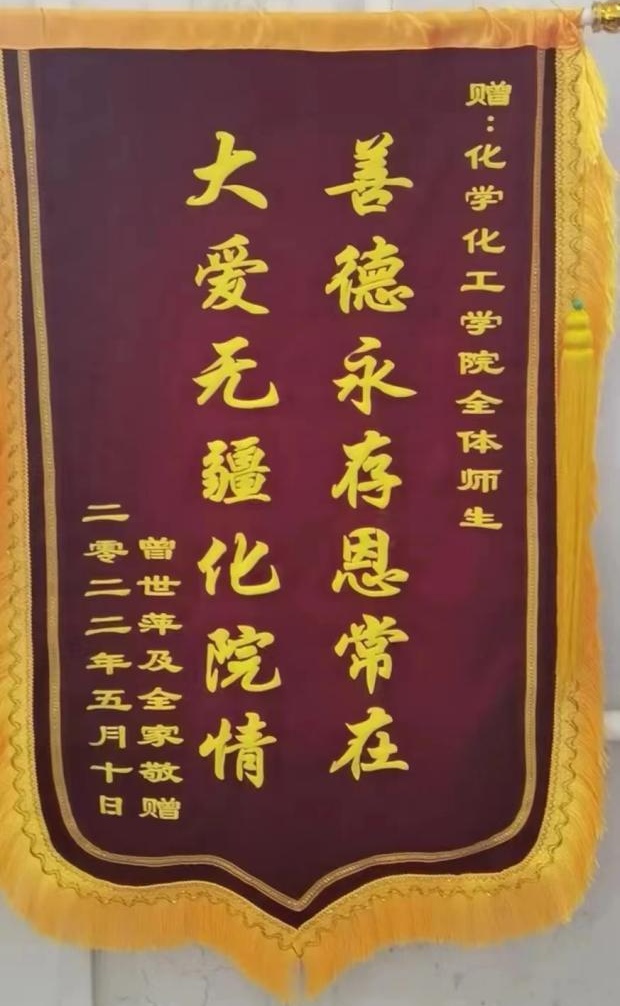 赠:化学化工学院全体师生
善德永存恩常在
大爱无疆化院情
曾世萍及全家敬赠
二零二二年五月十日